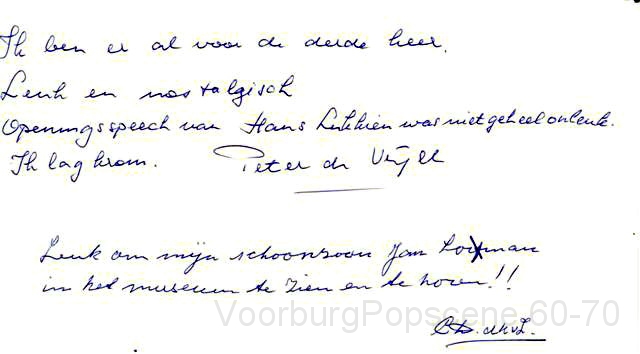 Ik ben er al voor de derde keer.
Leuk en nostalgisch
Openingsspeech van Hans Lukkien was niet geheel onleuk.
Ik lag krom. Peter de
Leuk om mijn schoonzoon Jan
in het museum te zien en te horen!!
VoorburgPopscene 60-70